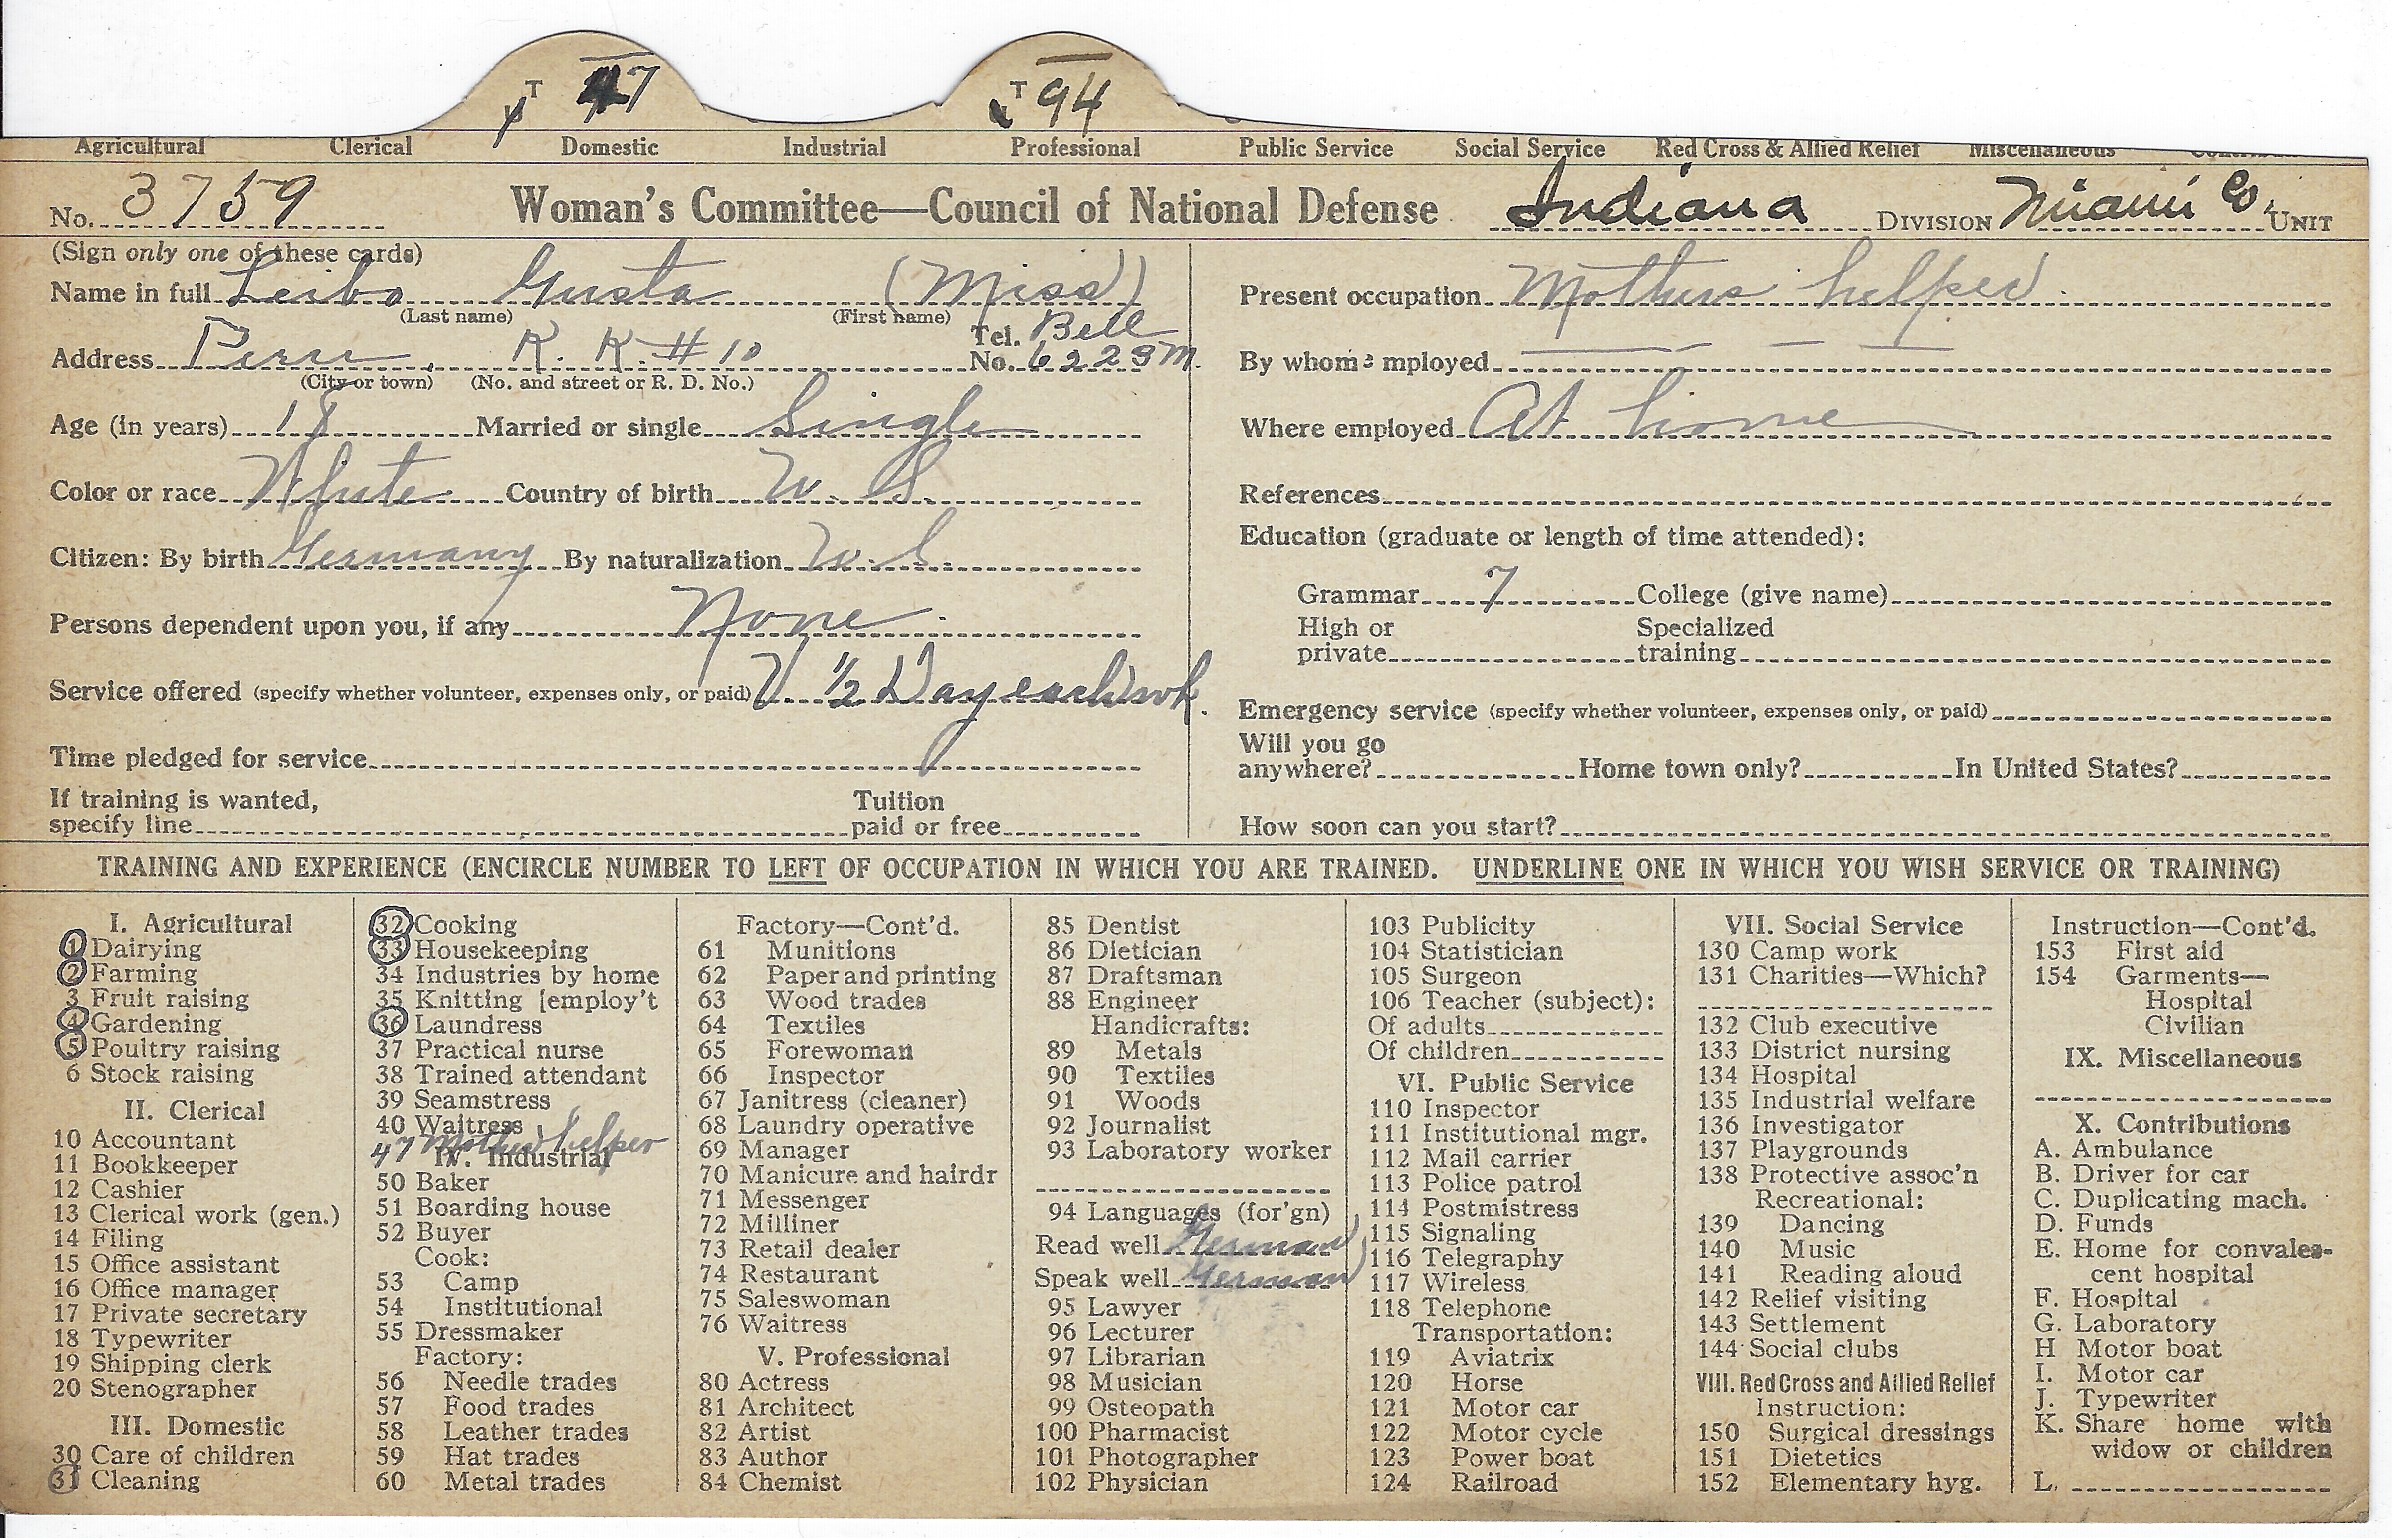 T 47 T 94
Agricultural Clerical Domestic Industrial Professional Public Service Social Service Red Cross & Allied Relief Miscellaneous
No. 3759 Woman's Committee—Council of National Defense Indiana DIVISION Miami Co. UNIT
(Sign only one of these cards)
Name in full Leibo Gusta (Miss)
(Last name) (First name)
Address Peru, R. R. #10 Tel. No. Bell 6223M.
(City or town) (No. and street or R. D. No.)
Age (in years) 18 Married or single Single
Color or race White Country of birth U. S.
Citizen: By birth Germany By naturalization U. S.
Persons dependent upon you, if any None
Service offered (specify whether volunteer, expenses only, or paid) V. 1/2 Day each wk.
Time pledged for service
If training is wanted,
specify line Tuition paid or free
Present occupation Mothers helper.
By whom employed
Where employed At home
References
Education (graduate or length of time attended):
Grammar 7 College (give name)
High or private Specialized training
Emergency service (specify whether volunteer, expenses only, or paid)
Will you go
anywhere? Home town only? In United States?
How soon can you start?
TRAINING AND EXPERIENCE (ENCIRCLE NUMBER TO LEFT OF OCCUPATION IN WHICH YOU ARE TRAINED. UNDERLINE ONE IN WHICH YOU WISH SERVICE OR TRAINING)
I. Agricultural
1 Dairying
2 Farming
3 Fruit raising
4 Gardening
5 Poultry raising
6 Stock raising
II. Clerical
10 Accountant
11 Bookkeeper
12 Cashier
13 Clerical work (gen.)
14 Filing
15 Office assistant
16 Office manager
17 Private secretary
18 Typewriter
19 Shipping clerk
20 Stenographer
III. Domestic
30 Care of children
31 Cleaning
32 Cooking
33 Housekeeping
34 Industries by home
35 Knitting [employ't
36 Laundress
37 Practical nurse
38 Trained attendant
39 Seamstress
40 Waitress
47 Mothers helper
IV. Industrial
50 Baker
51 Boarding house
52 Buyer
Cook:
53 Camp
54 Institutional
55 Dressmaker
Factory:
56 Needle trades
57 Food trades
58 Leather trades
59 Hat trades
60 Metal trades
Factory—Cont'd.
61 Munitions
62 Paper and printing
63 Wood trades
64 Textiles
65 Forewoman
66 Inspector
67 Janitress (cleaner)
68 Laundry operative
69 Manager
70 Manicure and hairdr
71 Messenger
72 Milliner
73 Retail dealer
74 Restaurant
75 Saleswoman
76 Waitress
V. Professional
80 Actress
81 Architect
82 Artist
83 Author
84 Chemist
85 Dentist
86 Dietician
87 Draftsman
88 Engineer
Handicrafts:
89 Metals
90 Textiles
91 Woods
92 Journalist
93 Laboratory worker
94 Languages (for'gn)
Read well German
Speak well German
95 Lawyer
96 Lecturer
97 Librarian
98 Musician
99 Osteopath
100 Pharmacist
101 Photographer
102 Physician
103 Publicity
104 Statistician
105 Surgeon
106 Teacher (subject):
Of adults
Of children
VI. Public Service
110 Inspector
111 Institutional mgr.
112 Mail carrier
113 Police patrol
114 Postmistress
115 Signaling
116 Telegraphy
117 Wireless
118 Telephone
Transportation:
119 Aviatrix
120 Horse
121 Motor car
122 Motor cycle
123 Power boat
124 Railroad
VII. Social Service
130 Camp work
131 Charities—Which?
132 Club executive
133 District nursing
134 Hospital
135 Industrial welfare
136 Investigator
137 Playgrounds
138 Protective assoc'n
Recreational:
139 Dancing
140 Music
141 Reading aloud
142 Relief visiting
143 Settlement
144 Social clubs
VIII. Red Cross and Allied Relief
Instruction:
150 Surgical dressings
151 Dietetics
152 Elementary hyg.
Instruction—Cont'd.
153 First aid
154 Garments—
Hospital
Civilian
IX. Miscellaneous
X. Contributions
A. Ambulance
B. Driver for car
C. Duplicating mach.
D. Funds
E. Home for convales-
cent hospital
F. Hospital
G. Laboratory
H Motor boat
I. Motor car
J. Typewriter
K. Share home with
widow or children
L.